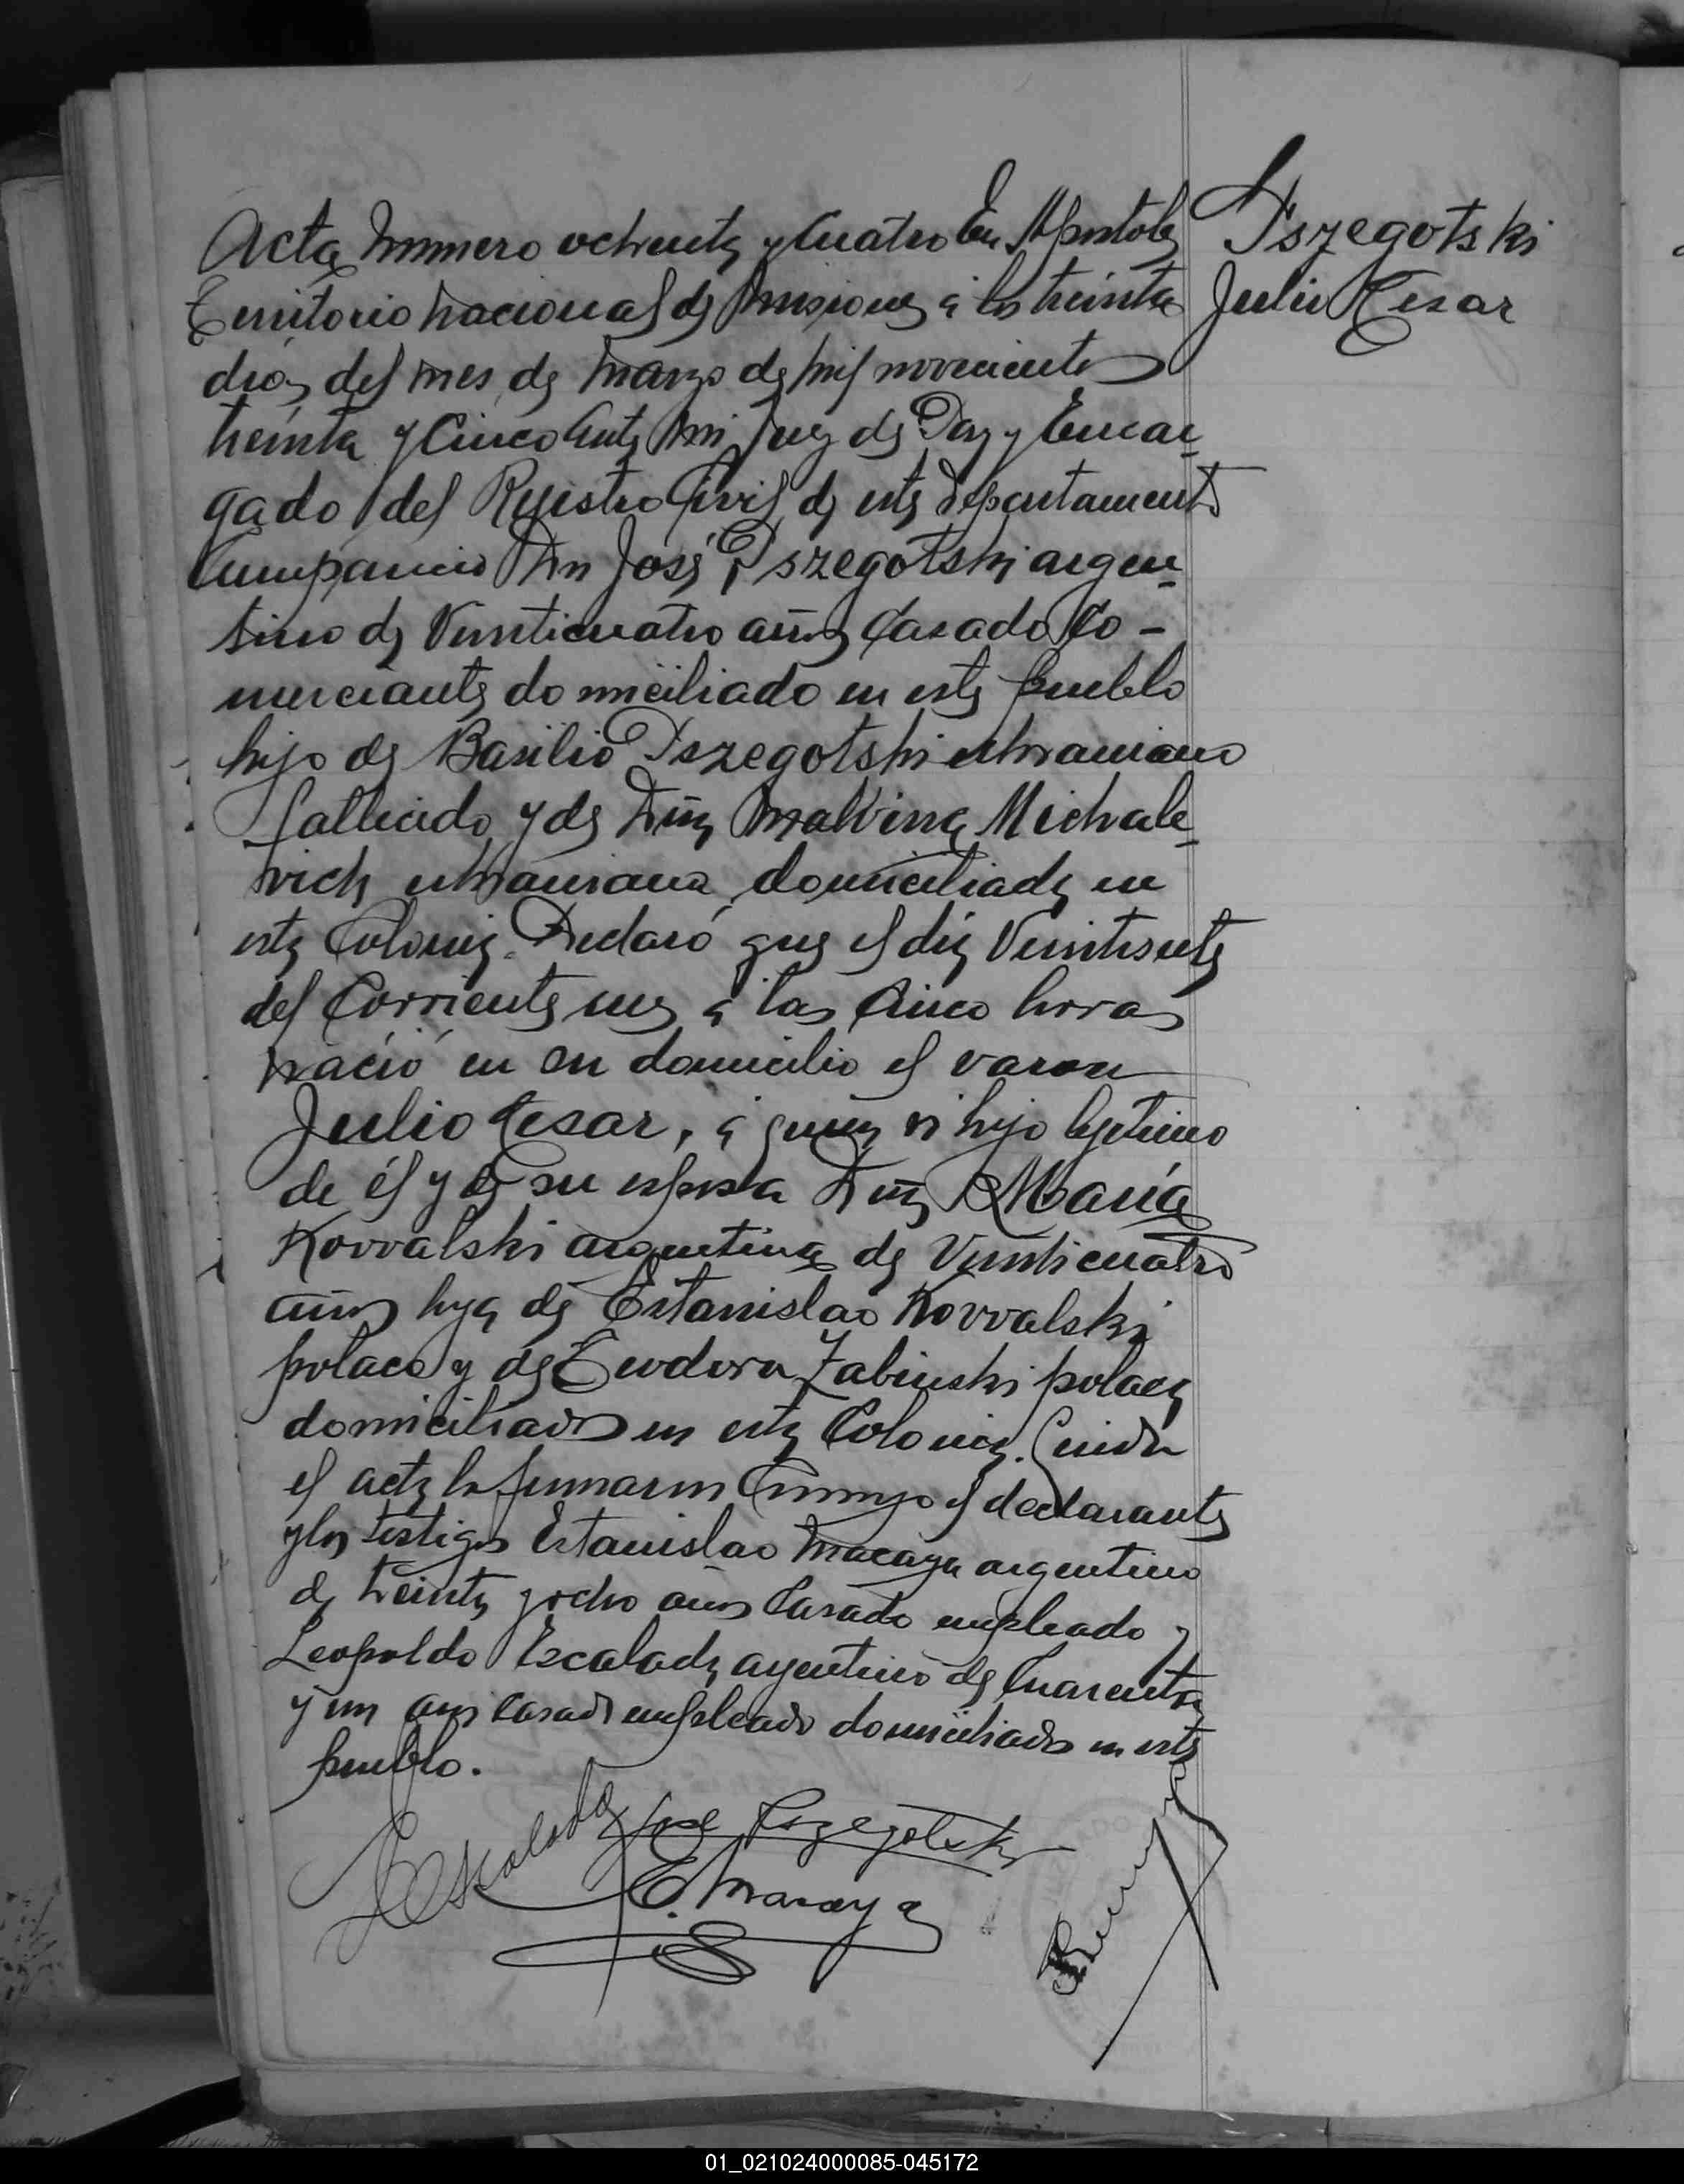 Acta Numero ochenta y Cuatro En Apostoles
Territorio Nacional de Misiones a los treinta
dias del mes de Marzo de mil novecientos
treinta y Cinco Ante Mi Juez de Paz y Encar-
gado del Registro Civil de este Departamento
Compareció Don José Pszegotski argen-
tino de Veinticuatro años Casado Co-
merciante domiciliado en este pueblo
hijo de Basilio Pszegotski ukraniano
fallecido y de Dña Malvina Michale-
vich ukraniana domiciliada en
esta Colonia. Declaró que el día Veintisiete
del Corriente mes a las Cinco horas
nació en su domicilio el varon
Julio Cesar, a quien es hijo legetimo
de él y de su esposa Dña María
Kovvalski argentina de Veinticuatro
años hija de Estanislao Kovvalski
polaco y de Teodora Zabinski polaca
domiciliados en esta Colonia. Leida
el acta la firmaron Conmigo el declarante
y los testigos Estanislao Macaya argentino
de treinta y ocho años Casado empleado y
Leopoldo Escalada argentino de Cuarenta
y un años casado empleado domiciliados en este
pueblo.
Pszegotski
Julio Cesar
LEscalada
José Pszegotski
E. Macaya
01_021024000085-045172